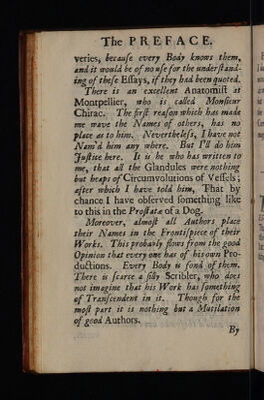 The PREFACE.
veries, because every Body knows them,
and it would be of no use for the understand-
ing of these Essays, if they had been quoted.
There is an excellent Anatomist at
Montpellier, who is called Monsieur
Chirac. The first reason which has made
me wave the Names of others, has no
place as to him. Nevertheless, I have not
Nam'd him any where. But I'll do him
Justice here. It is he who has written to
me, that all the Glandules were nothing
but heaps of Circumvolutions of Vessels;
after which I have told him, That by
chance I have observed something like
to this in the Prostatæ of a Dog.
Moreover, almost all Authors place
their Names in the Frontispiece of their
Works. This probably flows from the good
Opinion that every one has of his own Pro-
ductions. Every Body is fond of them.
There is scarce a silly Scribler, who does
not imagine that his Work has something
of Transcendent in it. Though for the
most part it is nothing but a Mutilation
of good Authors.
By